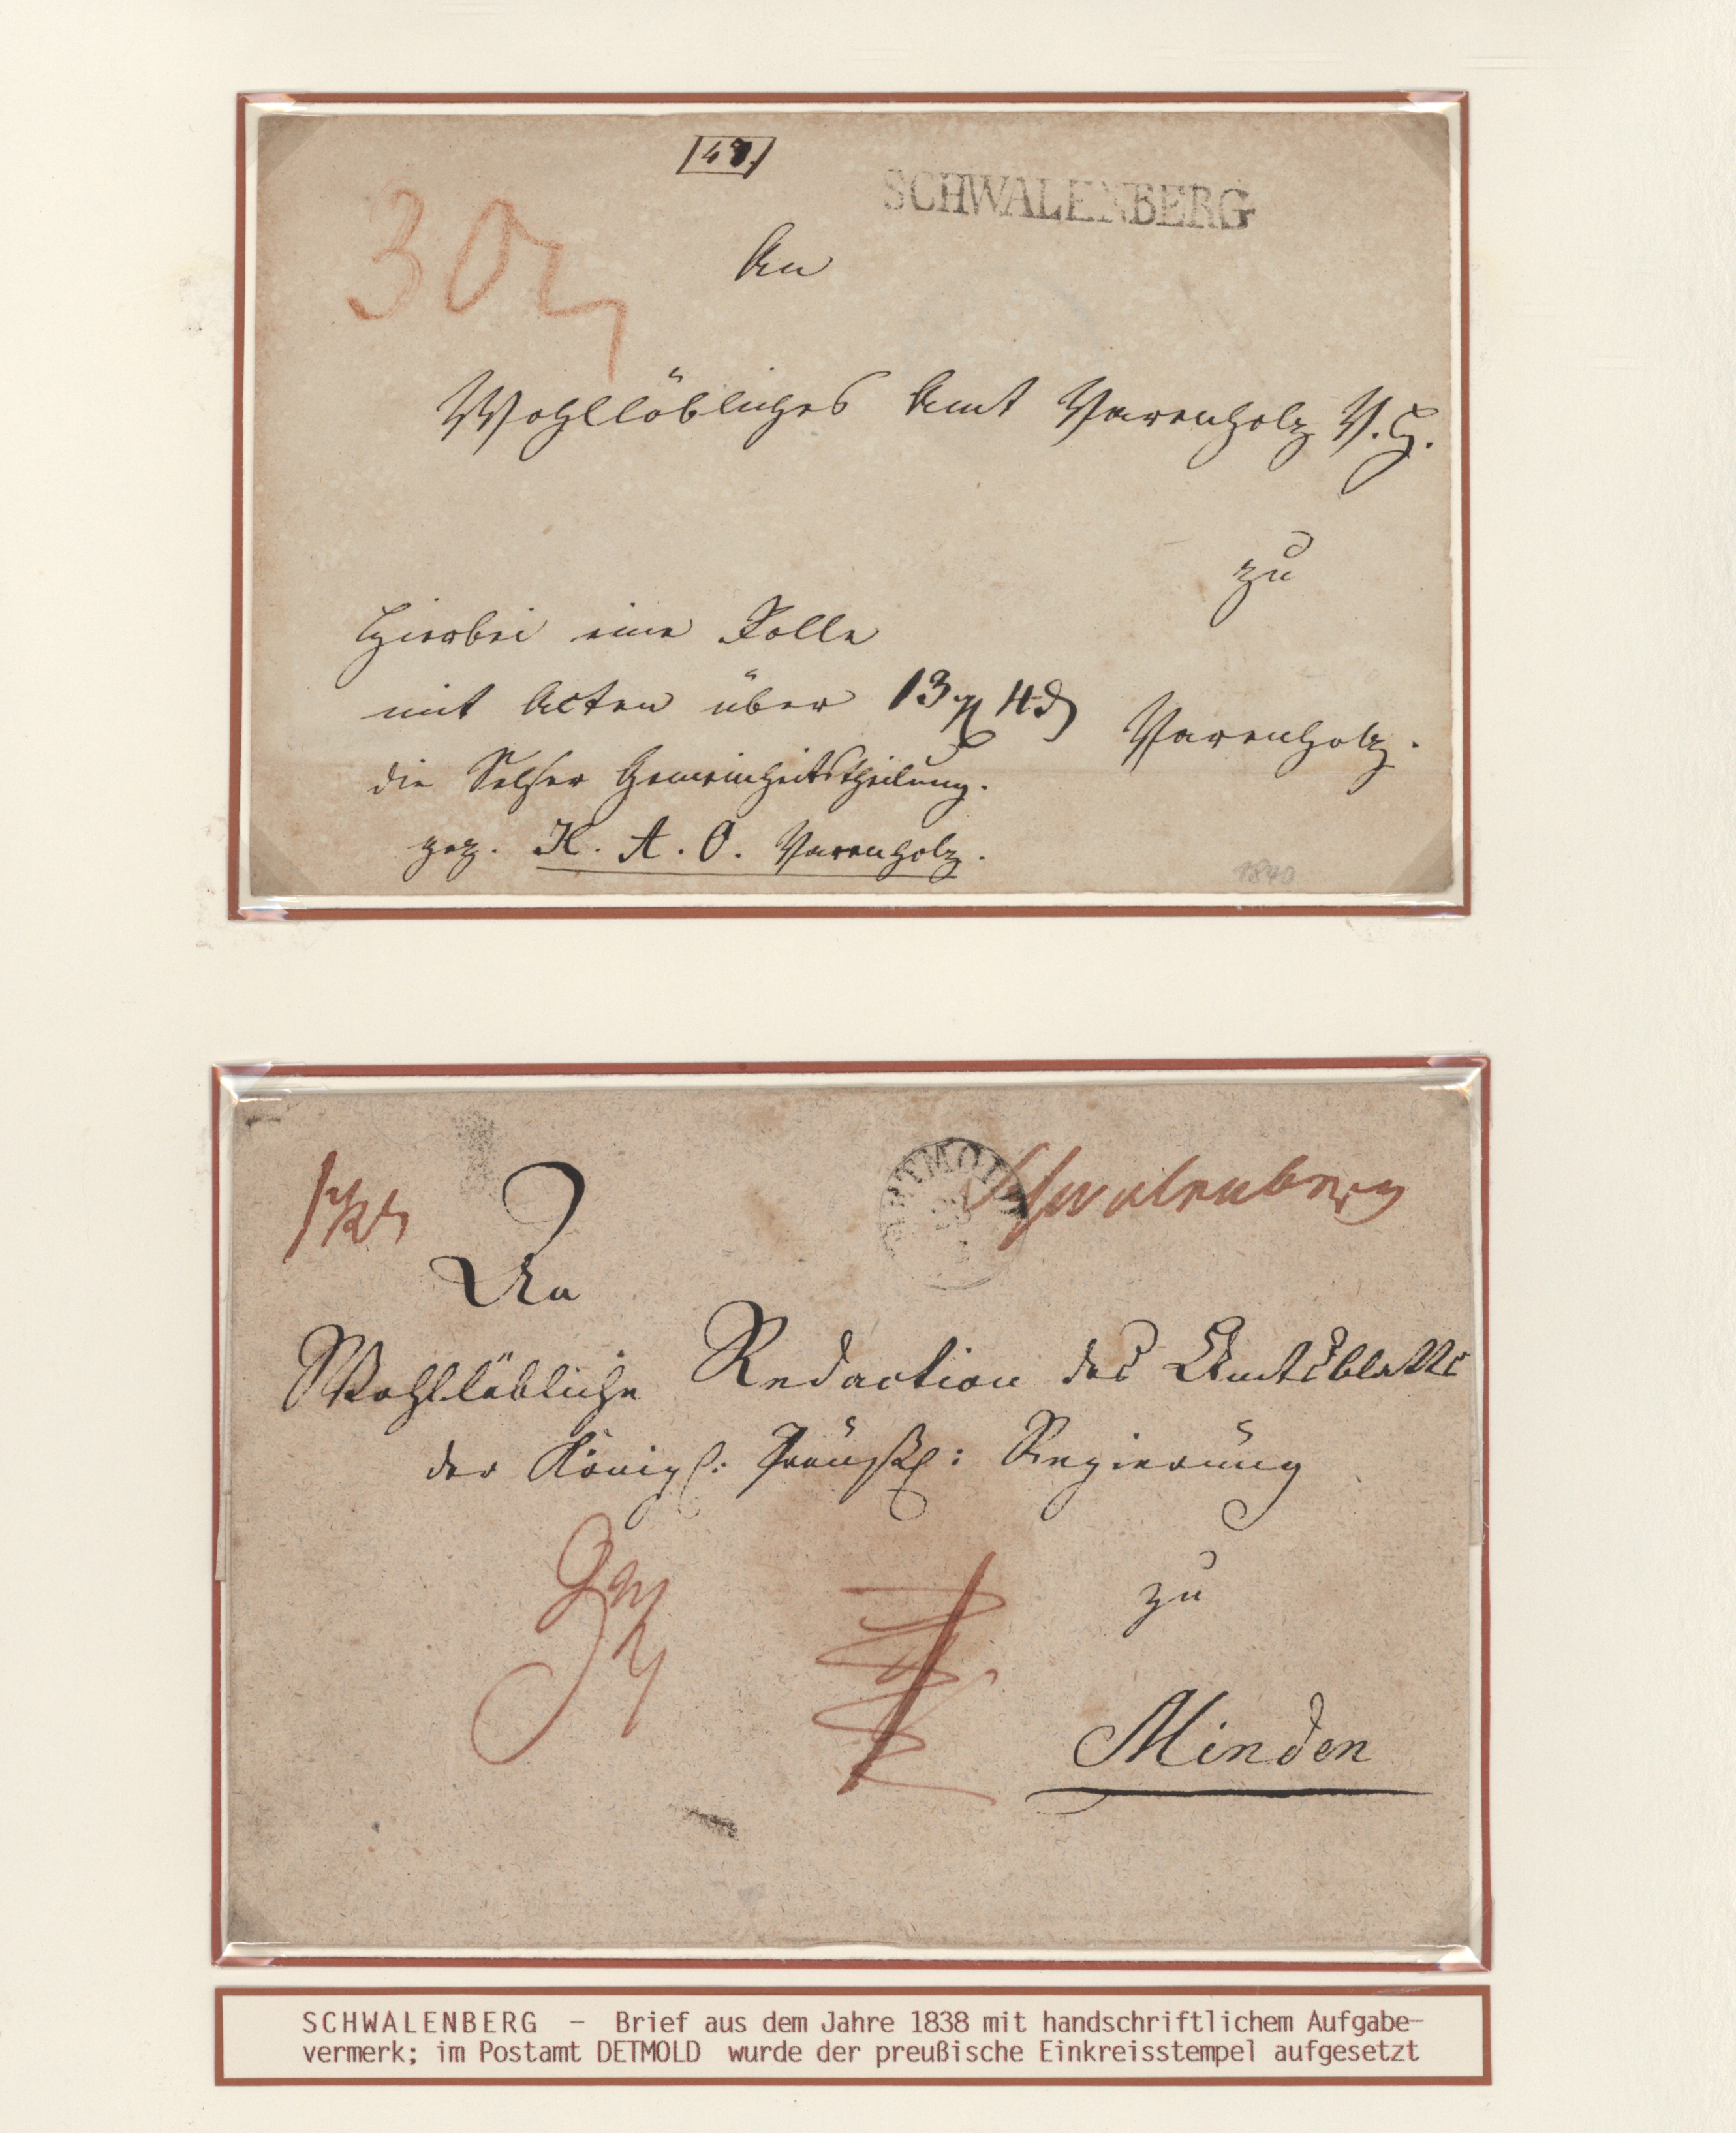 SCHWALENBERG
An
Wohllöbliches Amt Varenholz V. H.
zu
Hierbei eine Rolle
mit Acten über 13
Varenholz.
die Selser Gemeinheitstheilung.
gez. K. A. O. Varenholz.
1840
DETMOLD
Schwalenberg
An
Wohllöbliche Redaction des Amtsblatts
der Königl: Preußl: Regierung
zu
Minden
SCHWALENBERG – Brief aus dem Jahre 1838 mit handschriftlichem Aufgabe-
vermerk; im Postamt DETMOLD wurde der preußische Einkreisstempel aufgesetzt